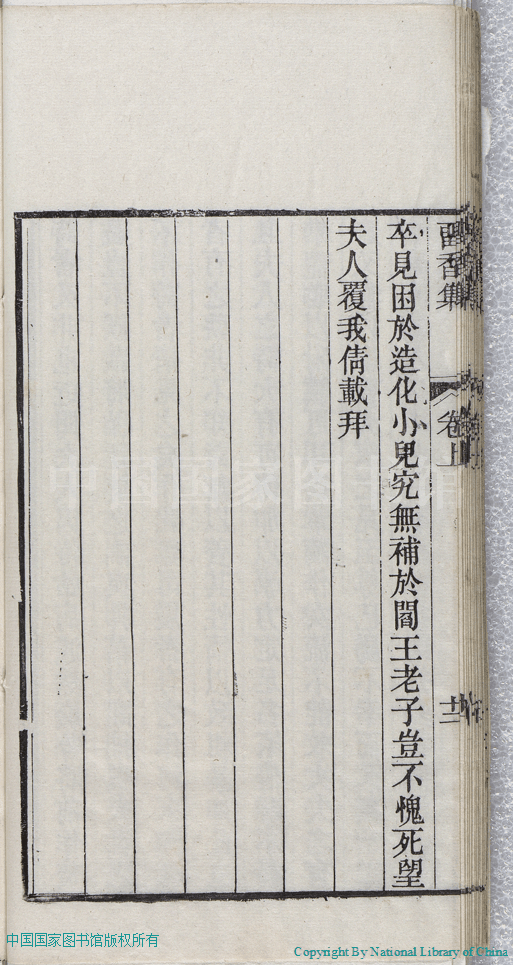 留香集
卷上
十二
卒見困於造化小兒究無補於閻王老子豈不愧死望
夫人覆我倩載拜
中国国家图书馆
中国国家图书馆版权所有
Copyright By National Library of China